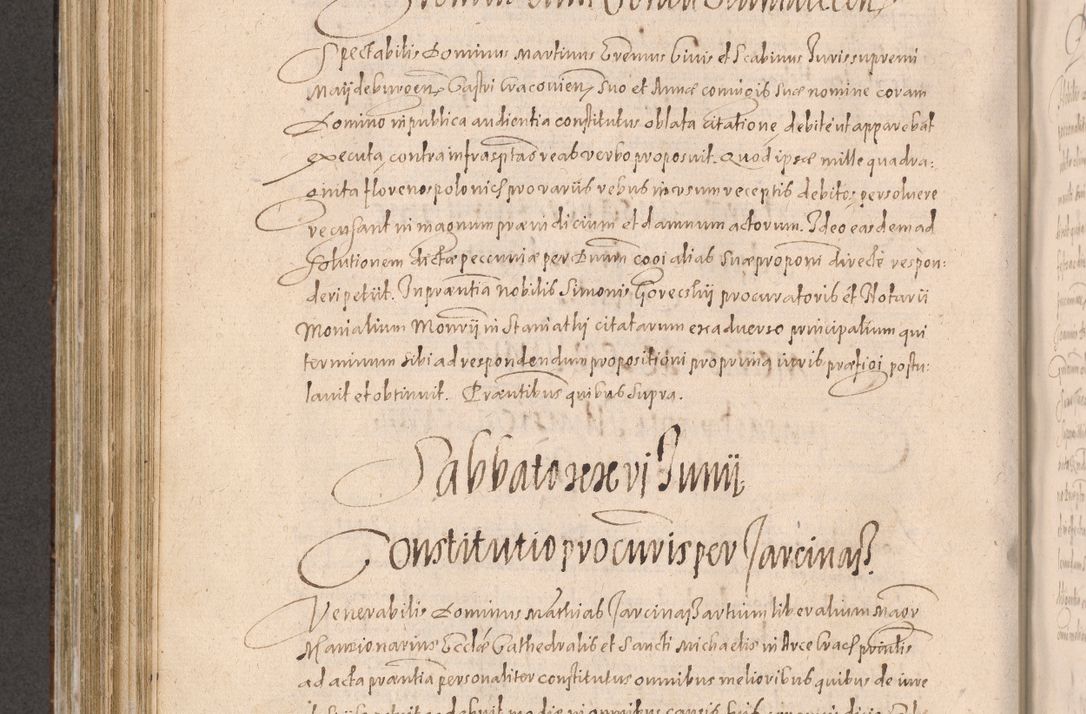 Spectabilis Dominus Martinus Eremus Civis et Scabinus Juris supremi
Maydeburgen Castri Cracovien suo et Annæ coniugis suæ nomine coram
Domino in publica audientia constitutus oblata citatione debite ut apparebat
executa contra infrasptas reas verbo proposuit. Quod ipsæ mille quadra:
ginta florenos polonicos pro variis rebus in usum receptis debitos persolvere
recusant in magnum præiudicium et damnum actorum. Ideo easdem ad
solutionem dictæ peccuniæ per Dnum cogi alias suæ proponi directe respon:
deri petiit. In præntia nobilis Simonis Goreczkij procuratoris et Notarii
Monialium Monrij in Staniathj citatarum ex adverso principalium qui
terminum sibi ad respondendum propositioni proprima iuris præfigi postu:
lavit et obtinuit. Præntibus quibus supra.
Sabbato xxvi Junij
Constitutio procuris per Jarcinasz.
Venerabilis Dominus Mathias Jarcinasz artium liberalium Magr
Mansionarius Ecclæ Cathedralis et Sancti Michaelis in Arce Crac prinlis
ad acta præntia personaliter constitutus omnibus melioribus quibus de iure